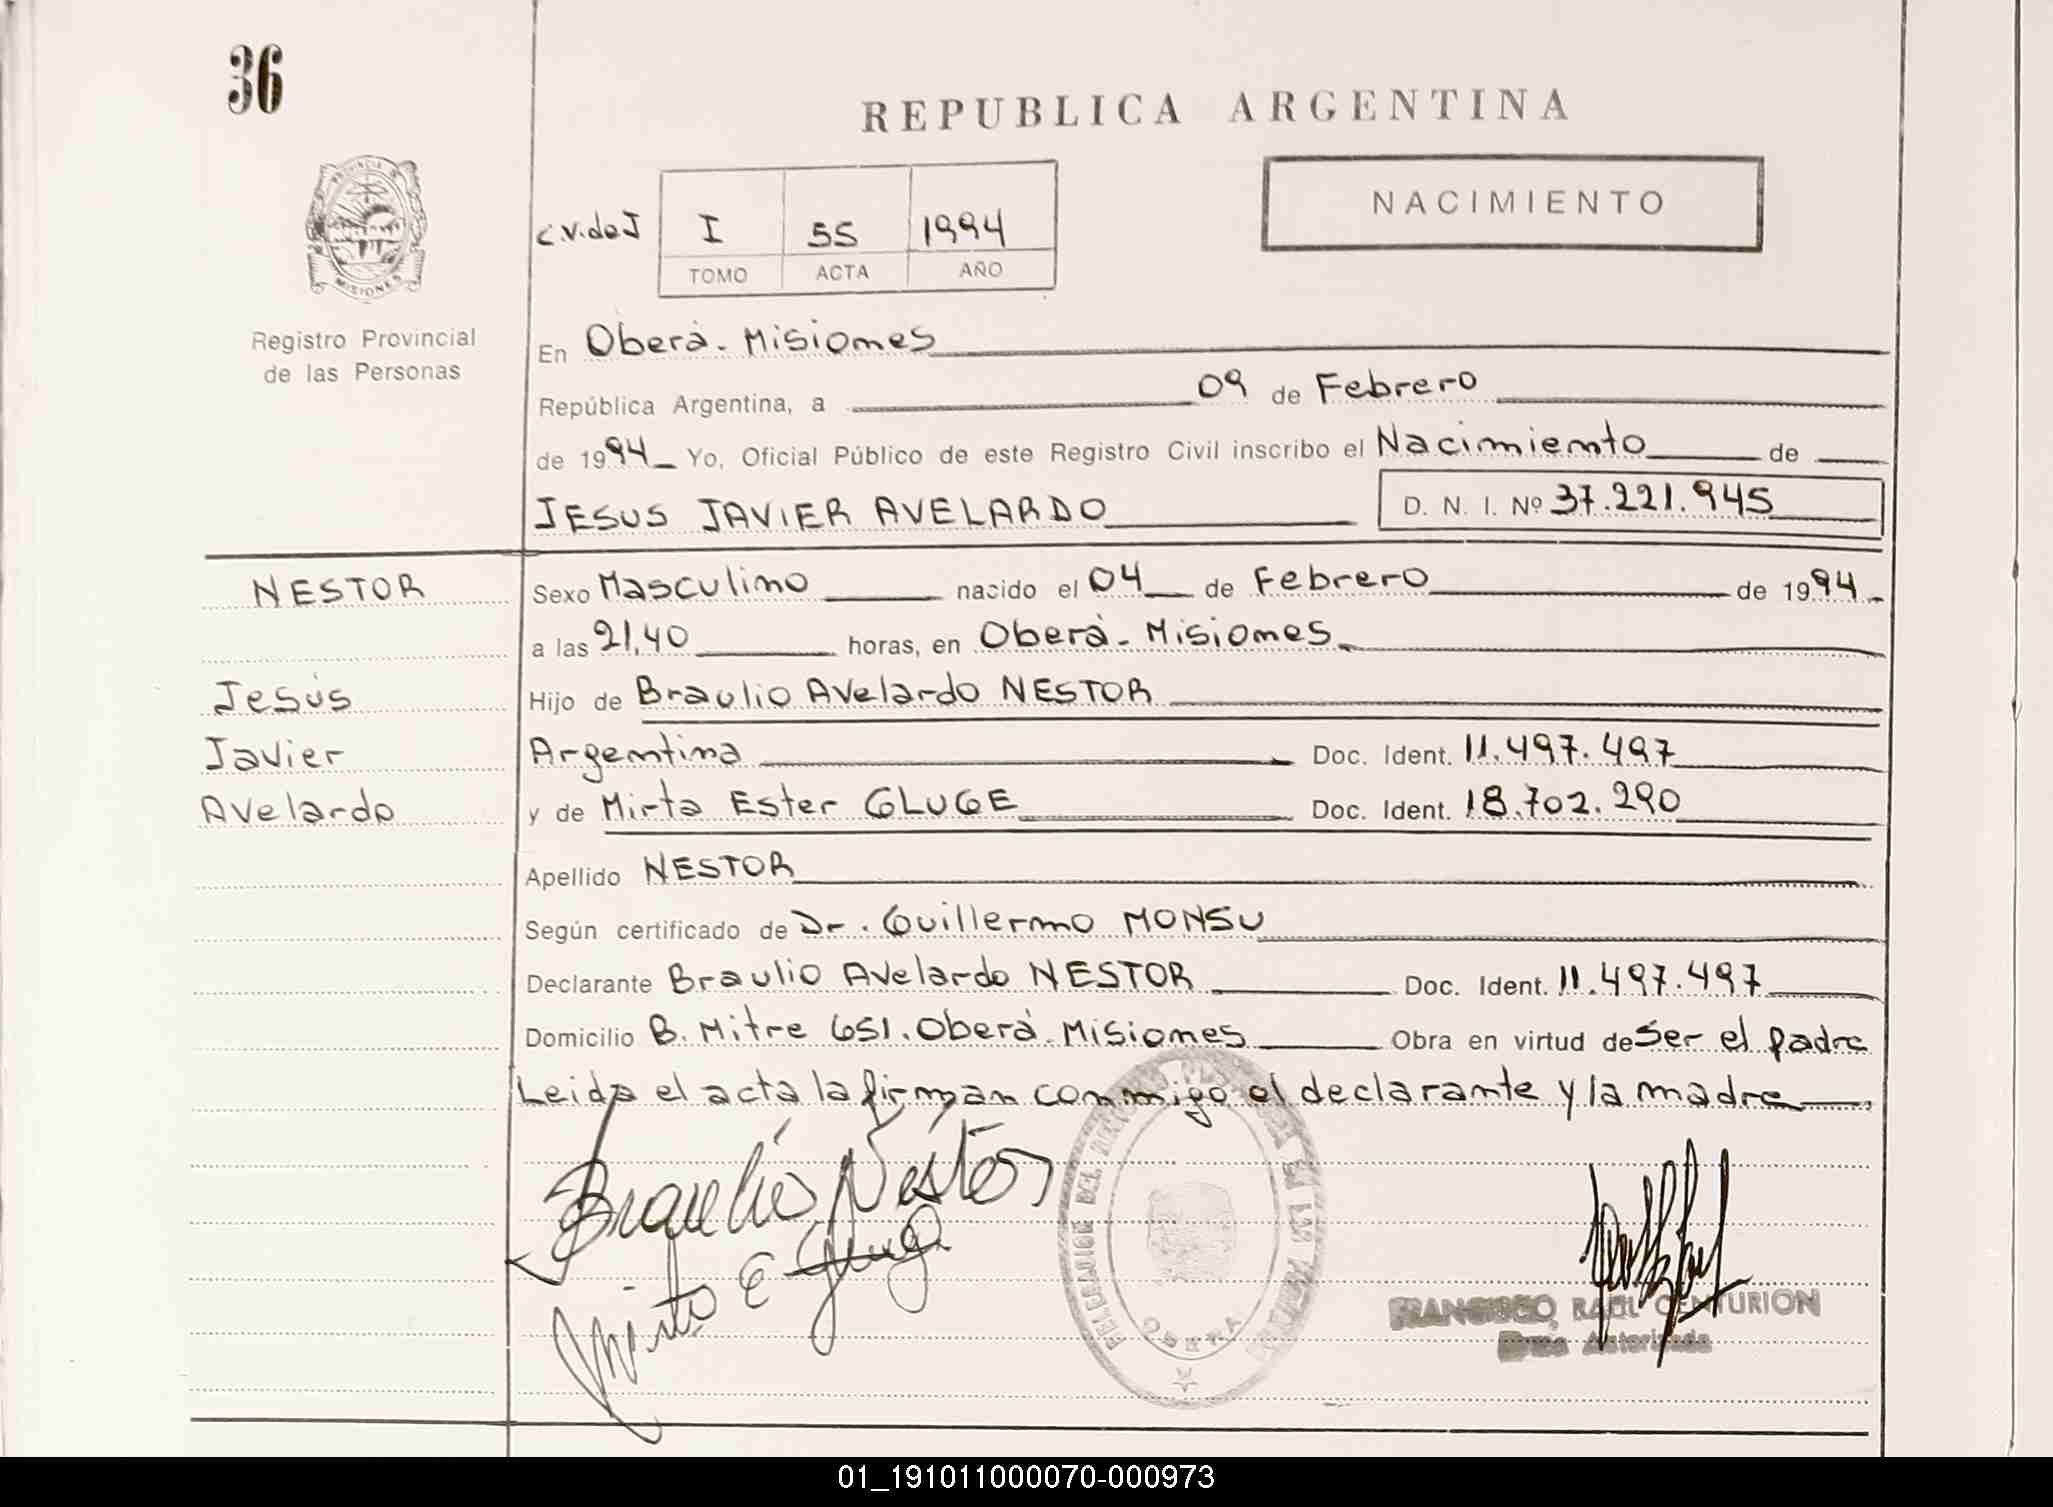 36
REPUBLICA ARGENTINA
PROVINCIA DE
MISIONES
NACIMIENTO
c.v.deJ I 55 1994
TOMO ACTA AÑO
Registro Provincial
de las Personas
En Oberà - Misiones
República Argentina, a 09 de Febrero
de 1994 Yo, Oficial Público de este Registro Civil inscribo el Nacimiento de
JESUS JAVIER AVELARDO D. N. I. Nº 37.221.945
NESTOR
Jesús
Javier
Avelardo
Sexo Masculino nacido el 04 de Febrero de 1994
a las 21,40 horas, en Oberà - Misiones
Hijo de Braulio Avelardo NESTOR
Argentina Doc. Ident. 11.497.497
y de Mirta Ester GLUGE Doc. Ident. 18.702.290
Apellido NESTOR
Según certificado de Dr. Guillermo MONSU
Declarante Braulio Avelardo NESTOR Doc. Ident. 11.497.497
Domicilio B. Mitre 651. Oberà. Misiones Obra en virtud de Ser el padre
Leida el acta la firman conmigo el declarante y la madre
Braulio Nestor
Mirta E Gluge
OBERA
FRANCISCO RAUL CENTURION
Firma Autorizada
01_191011000070-000973